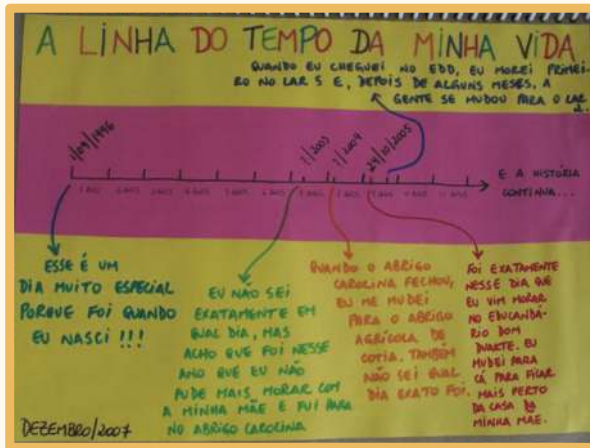 A LINHA DO TEMPO DA MINHA VIDA
QUANDO EU CHEGUEI NO EDD, EU MOREI PRIMEI-
RO NO LAR 5 E, DEPOIS DE ALGUNS MESES, A
GENTE SE MUDOU PARA O LAR
/2003
/2004
29/10/2005
E A HISTÓRIA
CONTINUA...
ESSE É UM
DIA MUITO ESPECIAL
PORQUE FOI QUANDO
EU NASCI !!!
EU NÃO SEI
EXATAMENTE EM
QUAL DIA, MAS
ACHO QUE FOI NESSE
ANO QUE EU NÃO
PUDE MAIS MORAR COM
A MINHA MÃE E FUI PARA
NO ABRIGO CAROLINA
QUANDO O ABRIGO
CAROLINA FECHOU,
EU ME MUDEI
PARA O ABRIGO
AGRÍCOLA DE
COTIA. TAMBÉM
NÃO SEI QUAL
DIA EXATO FOI.
FOI EXATAMENTE
NESSE DIA QUE
EU VIM MORAR
NO EDUCANDÁ-
RIO DOM
DUARTE. EU
MUDEI PARA
CÁ PARA FICAR
MAIS PERTO
DA CASA DA
MINHA MÃE.
DEZEMBRO/2007